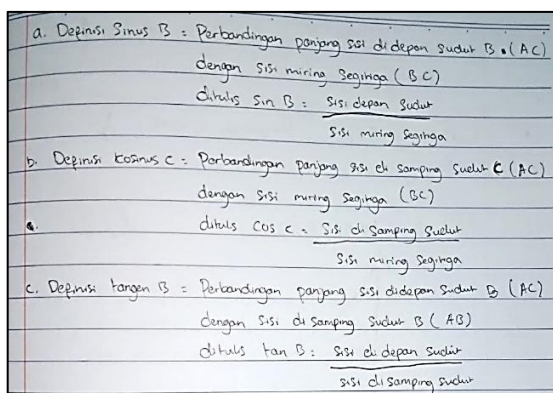 a. Definisi Sinus B = Perbandingan panjang sisi di depan sudut B. (AC)
dengan sisi miring segitiga (BC)
ditulis Sin B = sisi depan sudut
sisi miring segitiga
b. Definisi kosinus C = Perbandingan panjang sisi di samping sudut C (AC)
dengan sisi miring segitiga (BC)
ditulis Cos C = sisi di samping sudut
sisi miring segitiga
c. Definisi tangen B = Perbandingan panjang sisi didepan sudut B (AC)
dengan sisi di samping sudut B (AB)
ditulis tan B = sisi di depan sudut
sisi di samping sudut